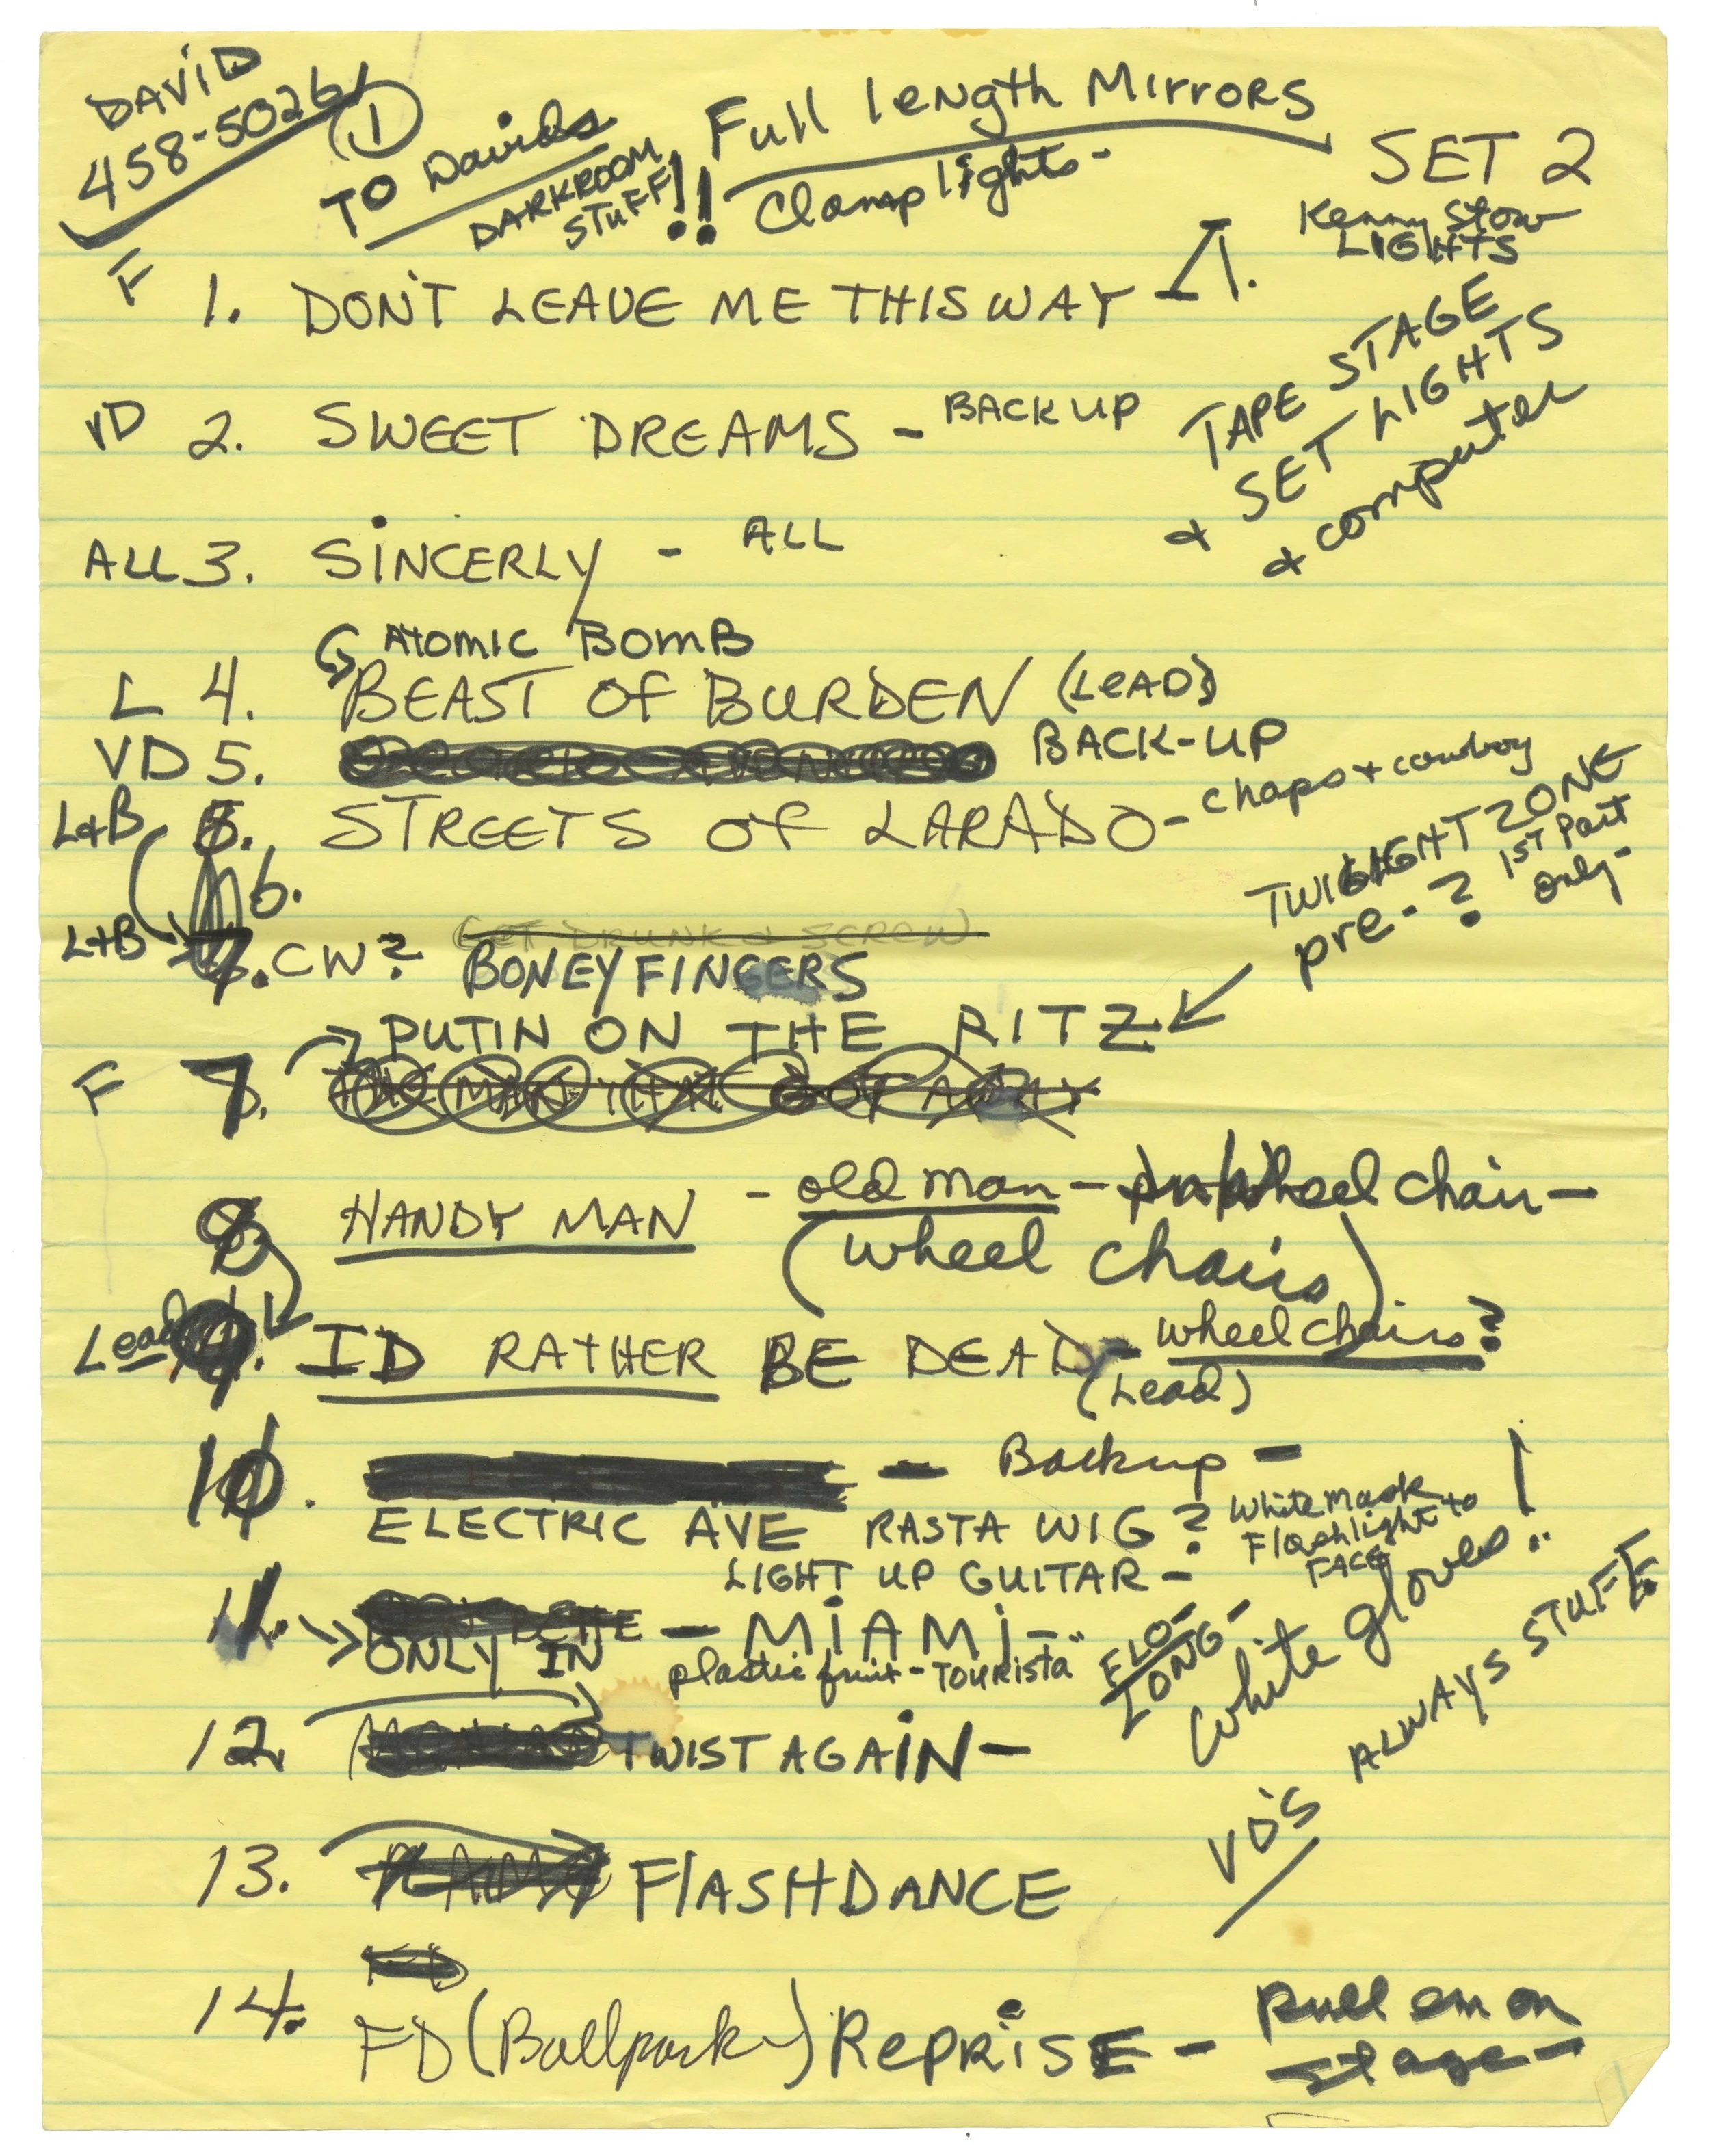 DAVID
458-5026
①
TO Davids
DARKROOM
STUFF!!
Full length Mirrors
Clamp lights-
SET 2
Kenny Stow
LIGHTS
F 1. DON'T LEAVE ME THIS WAY - 1.
TAPE STAGE
+ SET LIGHTS
+ computer
VD 2. SWEET DREAMS - BACK UP
ALL 3. SINCERLY - ALL
ATOMIC BOMB
L 4. BEAST OF BURDEN (LEAD)
VD 5. BACK-UP
L+B 5. STREETS OF LARADO - chaps + cowboy
6.
TWILIGHT ZONE
pre-? 1ST Part
only-
GET DRUNK & SCREW
L+B 7. CW? BONEY FINGERS
PUTIN ON THE RITZ
F 7. THE MAN THAT GOT AWAY
8. HANDY MAN - old man - wheel chair -
(wheel chairs)
Lead 9. ID RATHER BE DEAD - wheel chairs?
(Lead)
10. - Backup -
ELECTRIC AVE RASTA WIG? White mask
Flashlight to
FACE
LIGHT UP GUITAR -
White gloves..!
11. - MIAMI -
ONLY IN plastic fruit - TOURISTA"
FLO-
LONG-
VD'S ALWAYS STUFF.
12. TWIST AGAIN -
13. FLASHDANCE
FD
14. FD (Ballpark) REPRISE - Pull em on
stage -